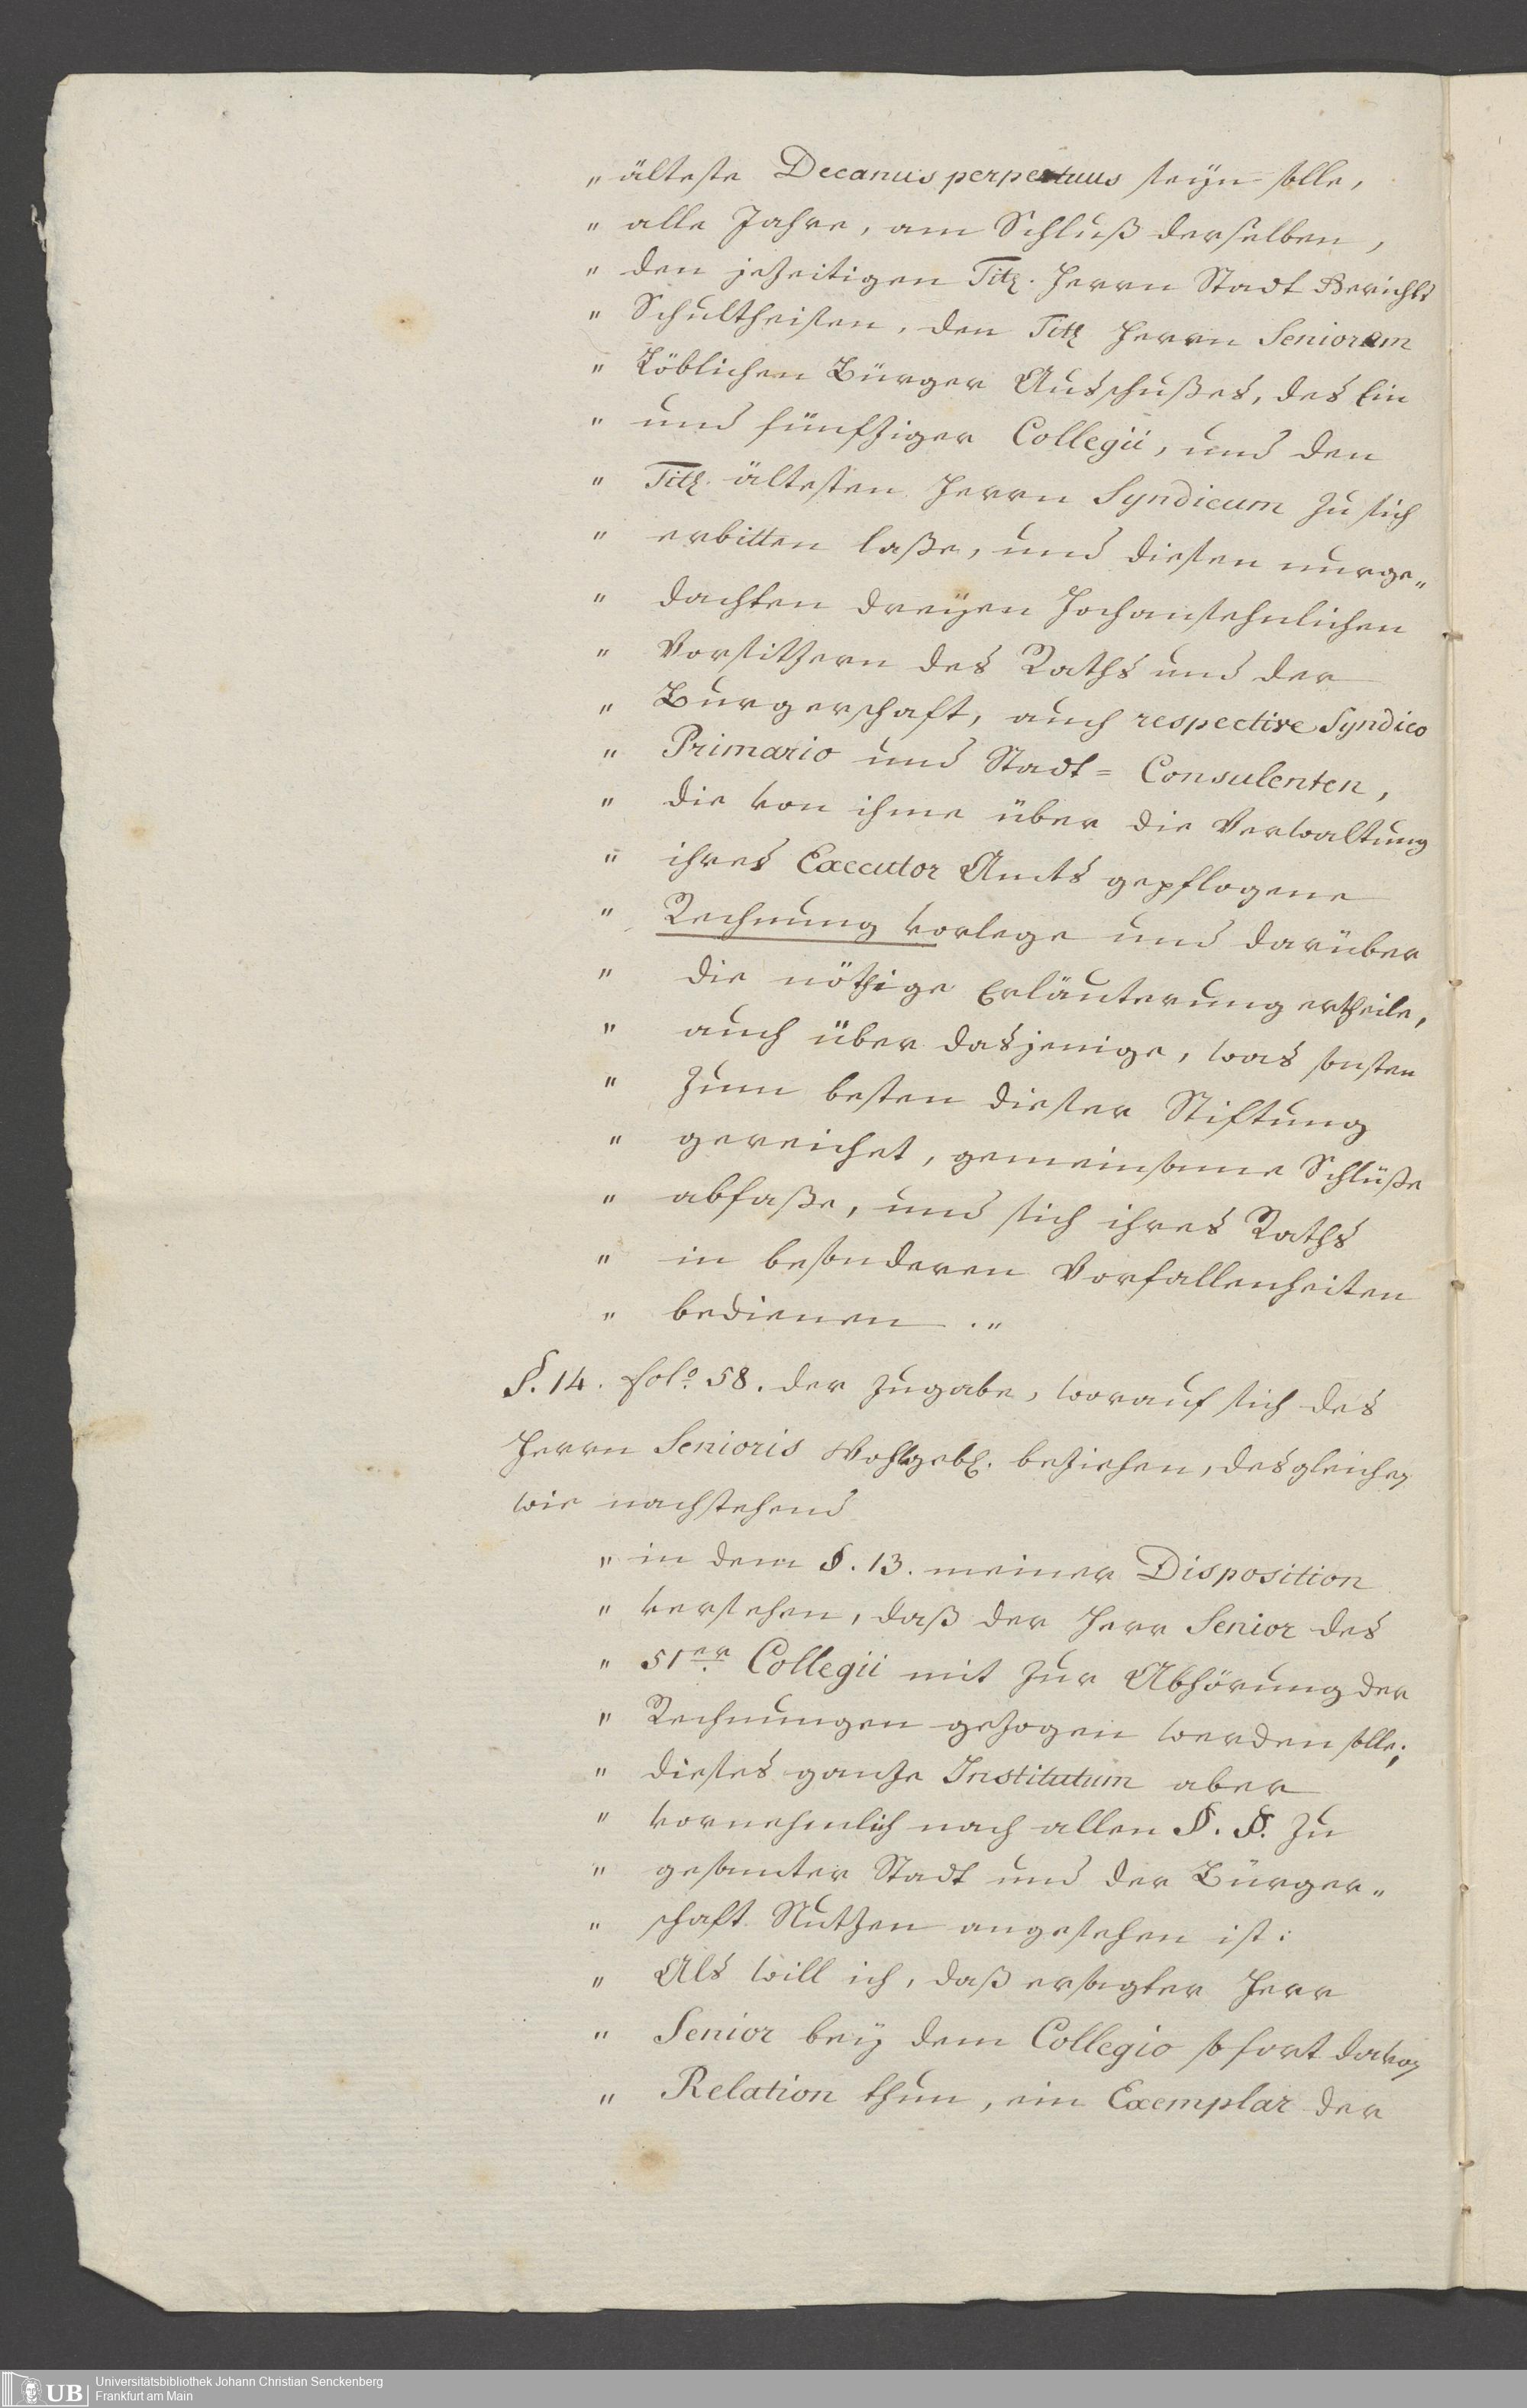 „ älteste Decanus perpetuus seyn solle,
„ alle Jahre, am Schluß derselben,
„ den jezeitigen Titl. Herrn Stadt Gerichts
„ Schultheisen, den Titl Herrn Seniorem
„ Löblichen Bürger Ausschußes, des Ein
„ und fünfziger Collegii, und den
„ Titl. ältesten Herrn Syndicum zu sich
„ erbitten laße, und diesen nurge„
„ dachten dreyen Hochansehnlichen
„ Vorsitzern des Raths und der
„ Burgerschaft, auch respective Syndico
„ Primario und Stadt= Consulenten,
„ die von ihme über die Verwaltung
„ ihres Executor Amts gepflogene
„ Rechnung vorlege und darüber
„ die nöthige Erläuterung ertheile,
„ auch über dasjenige, was sonsten
„ zum besten dieser Stiftung
„ gereichet, gemeinsame Schlüße
„ abfaße, und sich ihres Raths
„ in besonderen Vorfallenheiten
„ bedienen.„
§. 14. folo. 58. der Zugabe, worauf sich des
Herrn Senioris Wohlgebl. beziehen, desgleichen
wie nachstehend
„ in dem §. 13. meiner Disposition
„ versehen, daß der Herr Senior des
„ 51er Collegii mit zur Abhörung der
„ Rechnungen gezogen werden solle;
„ dieses ganze Institutum aber
„ vornehmlich nach allen §. §. zu
„ gesamter Stadt und der Bürger„
„ schaft Nutzen angesehen ist:
„ Als will ich, daß ersagter Herr
„ Senior bey dem Collegio so fort davon
„ Relation thun, ein Exemplar der
UB Universitätsbibliothek Johann Christian Senckenberg
Frankfurt am Main